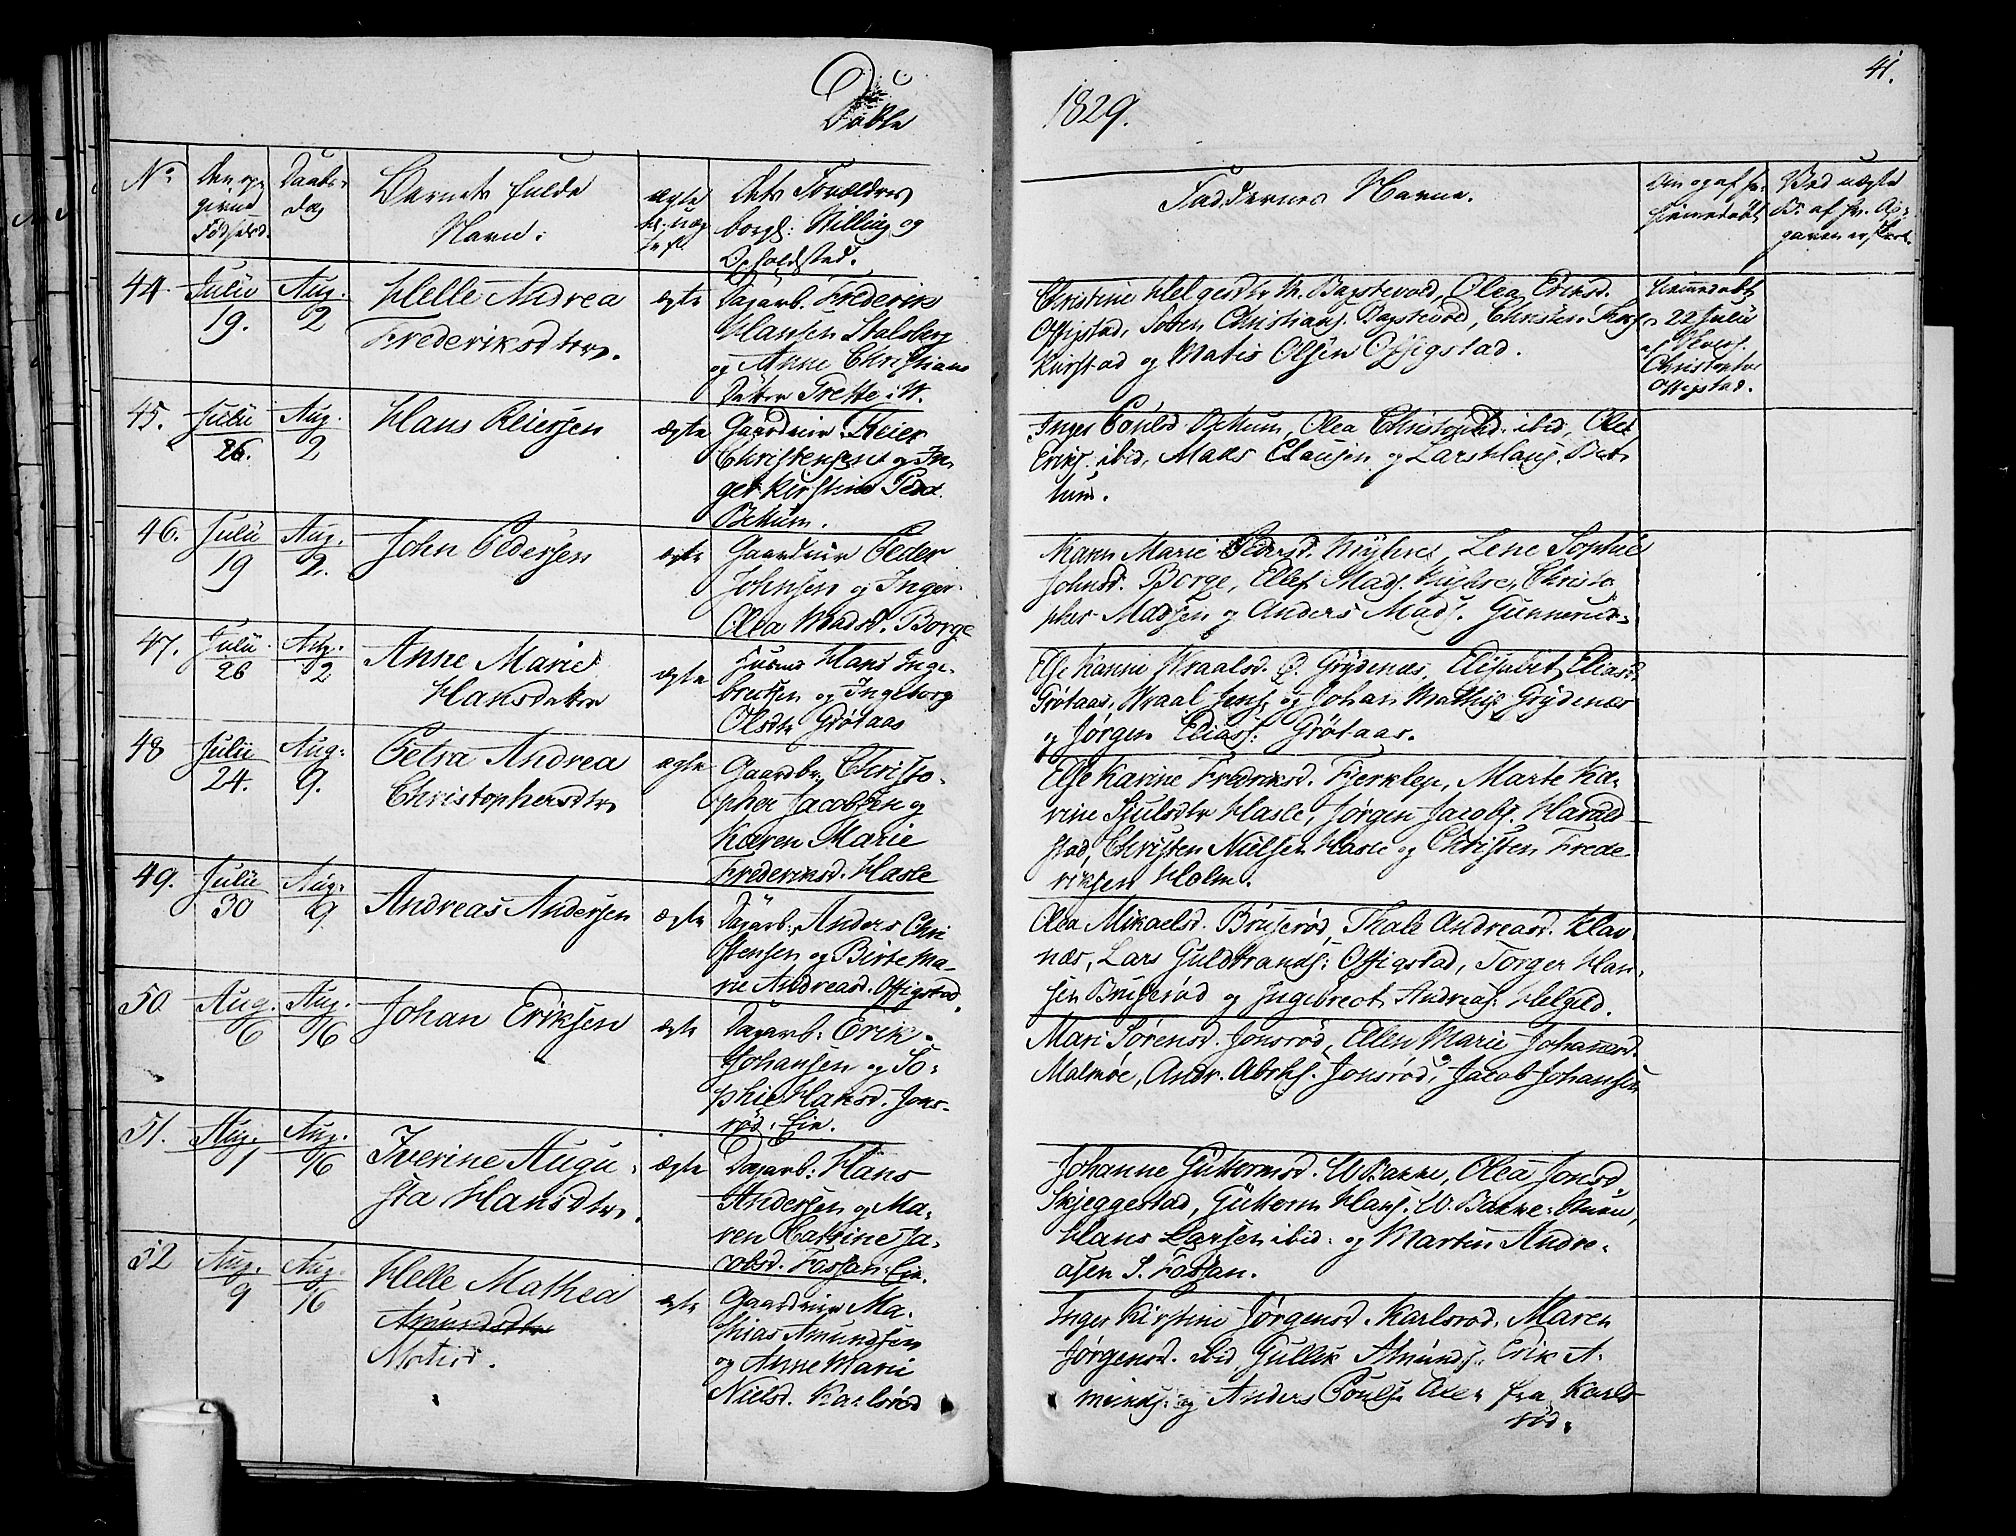 Døbte
1829.
41.
No.
Den opgivne Fødselsd.
Daabsdag
Barnets fulde Navn.
ægte el. uægte
Dets Forældres borgl. Stilling og Opholdsted.
Faddernes Navne.
44
Julii 19.
Aug. 2
Helle Andrea
Frederiksdtr.
ægte
Dagarb. Frederik
Hansen Stalsberg
og Anne Christians
Datter Trette i W.
Christine Helgesdtr M. Bagstevold, Olea Eriksd.
Offigstad, Soren Christians. Bagstevold, Christen
og Matis Olsen Offigstad.
hiemdøbt
22 Julii
af
Christopher
Offigstad.
45.
Julii 26.
Aug. 2
Hans Reiersen
ægte
Gaardmr Reier
Christensen og In-
ger Kirstine Ped.
Bettum.
Inger Poulsd Bettum, Olea Christophd. ibid, Ole
Eriks. ibid, Maks Clausen og Lars Hans. Bet
tum.
46.
Julii 19
Aug. 2.
John Pedersen
ægte
Gaardmr Peder
Johnsen og Inger
Olea Madsd. Borge
Karen Marie Pedersd. Nyhre, Lene Sophie
Johnsd. Borge, Ellef Mads. Nyhre, Christo
pher Madsen og Anders Mads. Gunnerud.
47.
Julii 26
Aug. 2
Anne Marie
Hansdatter
ægte
Husmd Hans Inge-
bretsen og Ingeborg
Olsdtr Grötaas
Else Karine Wraalsd. Ø. Grydenæs, Elisabet Eliasd.
Grötaas, Wraal Jens. og Johan Mathis. Grydenæs
og Jørgen Eliass. Grötaas.
48
Julii 24.
Aug. 9.
Petra Andrea
Christophersdtr
ægte
Gaardbr. Christo-
pher Jacobsen og
Karen Marie
Frederiksd. Hasle
Else Karine Fredriksd. Fjerklep, Marte Ka-
rine Sjulsdtr Hasle, Jørgen Jacobs. Harald
stad, Christen Nielsen Hasle og Christen Frede
riksen Holm.
49.
Julii 30
Aug. 9
Andreas Andersen
ægte
Dagarb. Anders Chri
stensen og Birte Ma-
rie Andreasd. Offigstad.
Olea Mikaelsd. Brúserød, Thale Andreasd. Klav
næs, Lars Guldbrands. Offigstad, Torger Han-
sen Bruserød og Ingebrect Andreas. Helgild.
50
Aug. 6
Aug. 16
Johan Eriksen
ægte
Dagarb. Erik
Johansen og So-
phie Hansd. Jons-
rød. Eie.
Mari Sørensd. Jonsrød, Ellen Marie Johannesd.
Malmøe, Andr. Abrhs. Jonsrød, Jacob Johansen
51.
Aug. 1
Aug. 16
Iverine Augu-
sta Hansdtr.
ægte
Dagarb. Hans
Andersen og Ma-
ren Katrine Ja-
cobsd. Fossan. Eie.
Johanne Guttormsd. W Bakke, Olea Jonsd
Skjeggestad, Güttorm Hans. W. Bakke,
Hans Larsen ibid. og Martin Andre-
asen S. Fossan.
52
Aug. 9
Aug. 16
Helle Mathea
Amundsdtr
Matisd.
ægte
Gaardmr Ma-
thias Amundsen
og Anne Mari
Nielsd. Karlsrød
Inger Kirstine Jørgensd. Karlsrod. Maren
Jørgensd. ibid, Gullik Amunds. Erik A-
munds. og Anders Pouls. Alle fra Karls
rød.